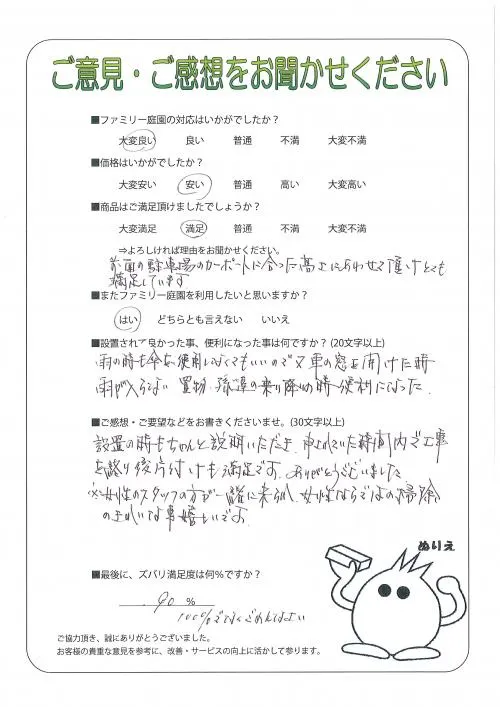 ご意見・ご感想をお聞かせください
■ファミリー庭園の対応はいかがでしたか？
大変良い 良い 普通 不満 大変不満
■価格はいかがでしたか？
大変安い 安い 普通 高い 大変高い
■商品はご満足頂けましたでしょうか？
大変満足 満足 普通 不満 大変不満
⇒よろしければ理由をお聞かせください。
前面の駐車場のカーポートに合った高さにあわせて頂けとても
満足しています
■またファミリー庭園を利用したいと思いますか？
はい どちらとも言えない いいえ
■設置されて良かった事、便利になった事は何ですか？(20文字以上)
雨の時も傘を使用しなくてもいいので又車の窓を開けた時
雨が入らない 買物、孫達の乗り降りの時便利になった。
■ご感想・ご要望などをお書きくださいませ。(30文字以上)
設置の時もちゃんと説明いただき、 時間内で工事
を終り後片付けも満足です。ありがとうございました
女性のスタッフの方が一緒に来られ、女性ならではの掃除
のきれいな事嬉しいです
ぬりえ
■最後に、ズバリ満足度は何%ですか？
90 %
100%でなくごめんなさい
ご協力頂き、誠にありがとうございました。
お客様の貴重な意見を参考に、改善・サービスの向上に活かして参ります。